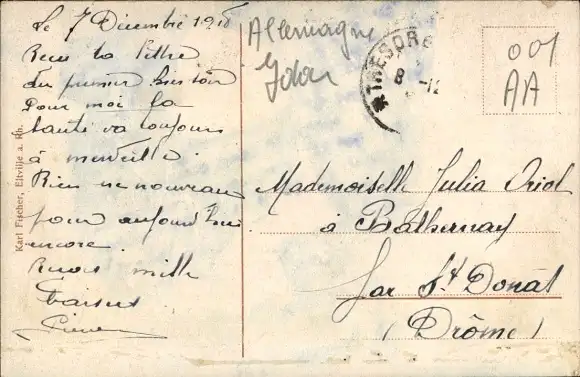 Le 7 Décembre 1918
Recu ta lettre
du premier
Pour moi la
santé va toujours
à merveille
Rien de nouveau
pour aujourd'hui
encore
Recois mille
baisers
Karl Fischer, Eltville a. Rh.
Allemagne
TRESOR
8 -12
001
AA
Mademoiselle Julia Oriol
à Bathernay
par St Donat
(Drôme)